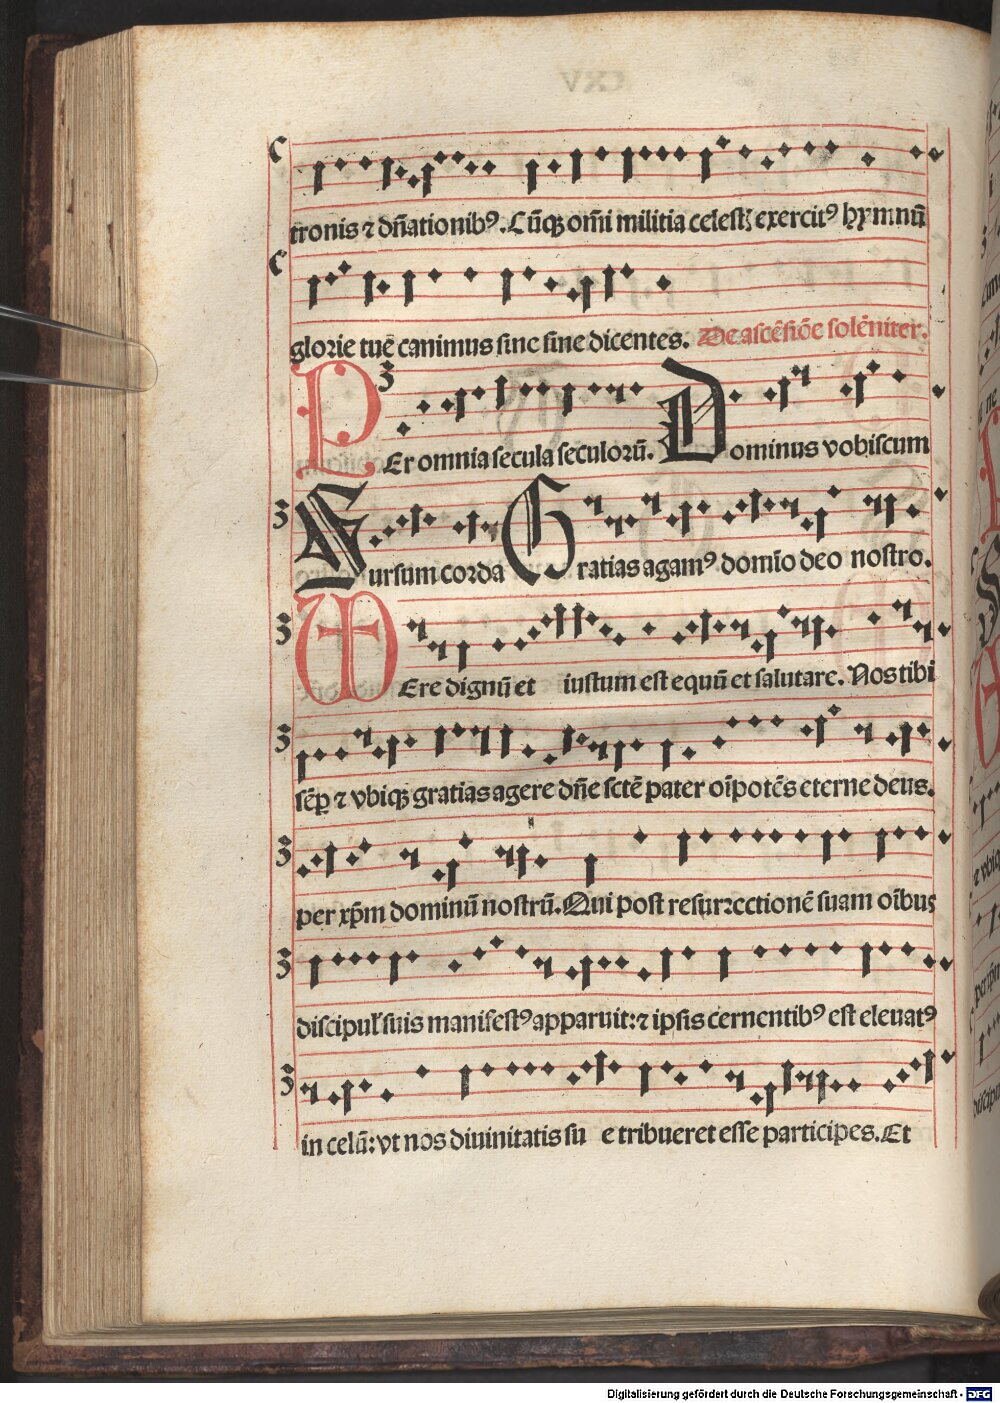 tronis ⁊ dn̄ationibꝰ. Cūqꝫ om̄i militia celestꝭ exercitꝰ hymnū
glorie tue canimus sine fine dicentes. De ascēsiōe solēniter.
PEr omnia secula seculorū. Dominus vobiscum
Sursum corda Gratias agamꝰ domīo deo nostro.
VEre dignū et iustum est equū et salutare. Nos tibi
sēꝑ ⁊ vbiqꝫ gratias agere dn̄e sctē pater oīpotēs eterne deus.
per xp̄m dominū nostrū. Qui post resurrectionē suam oībus
discipul' suis manifestꝰ apparuit: ⁊ ipsis cernentibꝰ est eleuatꝰ
in celū: vt nos diuinitatis su e tribueret esse participes. Et
Digitalisierung gefördert durch die Deutsche Forschungsgemeinschaft - DFG